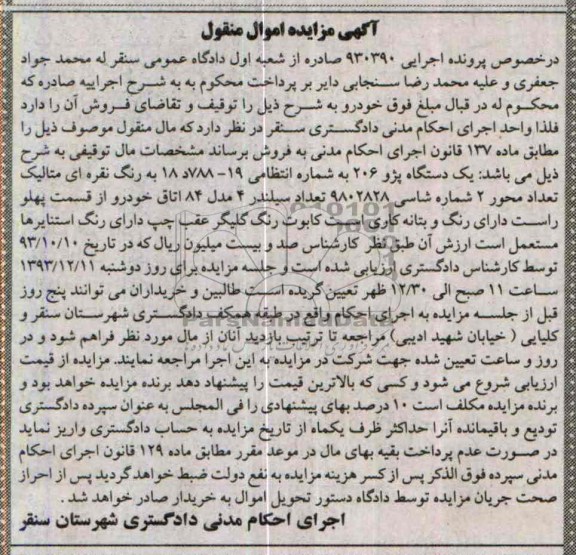 آگهی مزایده اموال منقول
درخصوص پرونده اجرایی ۹۳۰۳۹۰ صادره از شعبه اول دادگاه عمومی سنقر له محمد جواد
جعفری و علیه محمد رضا سنجابی دایر بر پرداخت محکوم به به شرح اجراییه صادره که
محکوم له در قبال مبلغ فوق خودرو به شرح ذیل را توقیف و تقاضای فروش آن را دارد
فلذا واحد اجرای احکام مدنی دادگستری سنقر در نظر دارد که مال منقول موصوف ذیل را
مطابق ماده ۱۳۷ قانون اجرای احکام مدنی به فروش برساند مشخصات مال توقیفی به شرح
ذیل می باشد: یک دستگاه پژو ۲۰۶ به شماره انتظامی ۱۹- ۷۸۸د ۱۸ به رنگ نقره ای متالیک
تعداد محور ۲ شماره شاسی ۹۸۰۲۸۲۸ تعداد سیلندر ۴ مدل ۸۴ اتاق خودرو از قسمت پهلو
راست دارای رنگ و بتانه کاری درب کاپوت رنگ گلگیر عقب چپ دارای رنگ استتایرها
مستعمل است ارزش آن طبق نظر کارشناس صد و بیست میلیون ریال که در تاریخ ۹۳/۱۰/۱۰
توسط کارشناس دادگستری ارزیابی شده است و جلسه مزایده برای روز دوشنبه ۱۳۹۳/۱۲/۱۱
ساعت ۱۱ صبح الی ۱۲/۳۰ ظهر تعیین گریده است طالبین و خریداران می توانند پنج روز
قبل از جلسه مزایده به اجرای احکام واقع در طبقه همکف دادگستری شهرستان سنقر و
کلیایی ( خیابان شهید ادیبی) مراجعه تا ترتیب بازدید آنان از مال مورد نظر فراهم شود و در
روز و ساعت تعیین شده جهت شرکت در مزایده به این اجرا مراجعه نمایند. مزایده از قیمت
ارزیابی شروع می شود و کسی که بالاترین قیمت را پیشنهاد دهد برنده مزایده خواهد بود و
برنده مزایده مکلف است ۱۰ درصد بهای پیشنهادی را فی المجلس به عنوان سپرده دادگستری
تودیع و باقیمانده آنرا حداکثر ظرف یکماه از تاریخ مزایده به حساب دادگستری واریز نماید
در صورت عدم پرداخت بقیه بهای مال در موعد مقرر مطابق ماده ۱۲۹ قانون اجرای احکام
مدنی سپرده فوق الذکر پس از کسر هزینه مزایده به نفع دولت ضبط خواهد گردید پس از احراز
صحت جریان مزایده توسط دادگاه دستور تحویل اموال به خریدار صادر خواهد شد .
اجرای احکام مدنی دادگستری شهرستان سنقر